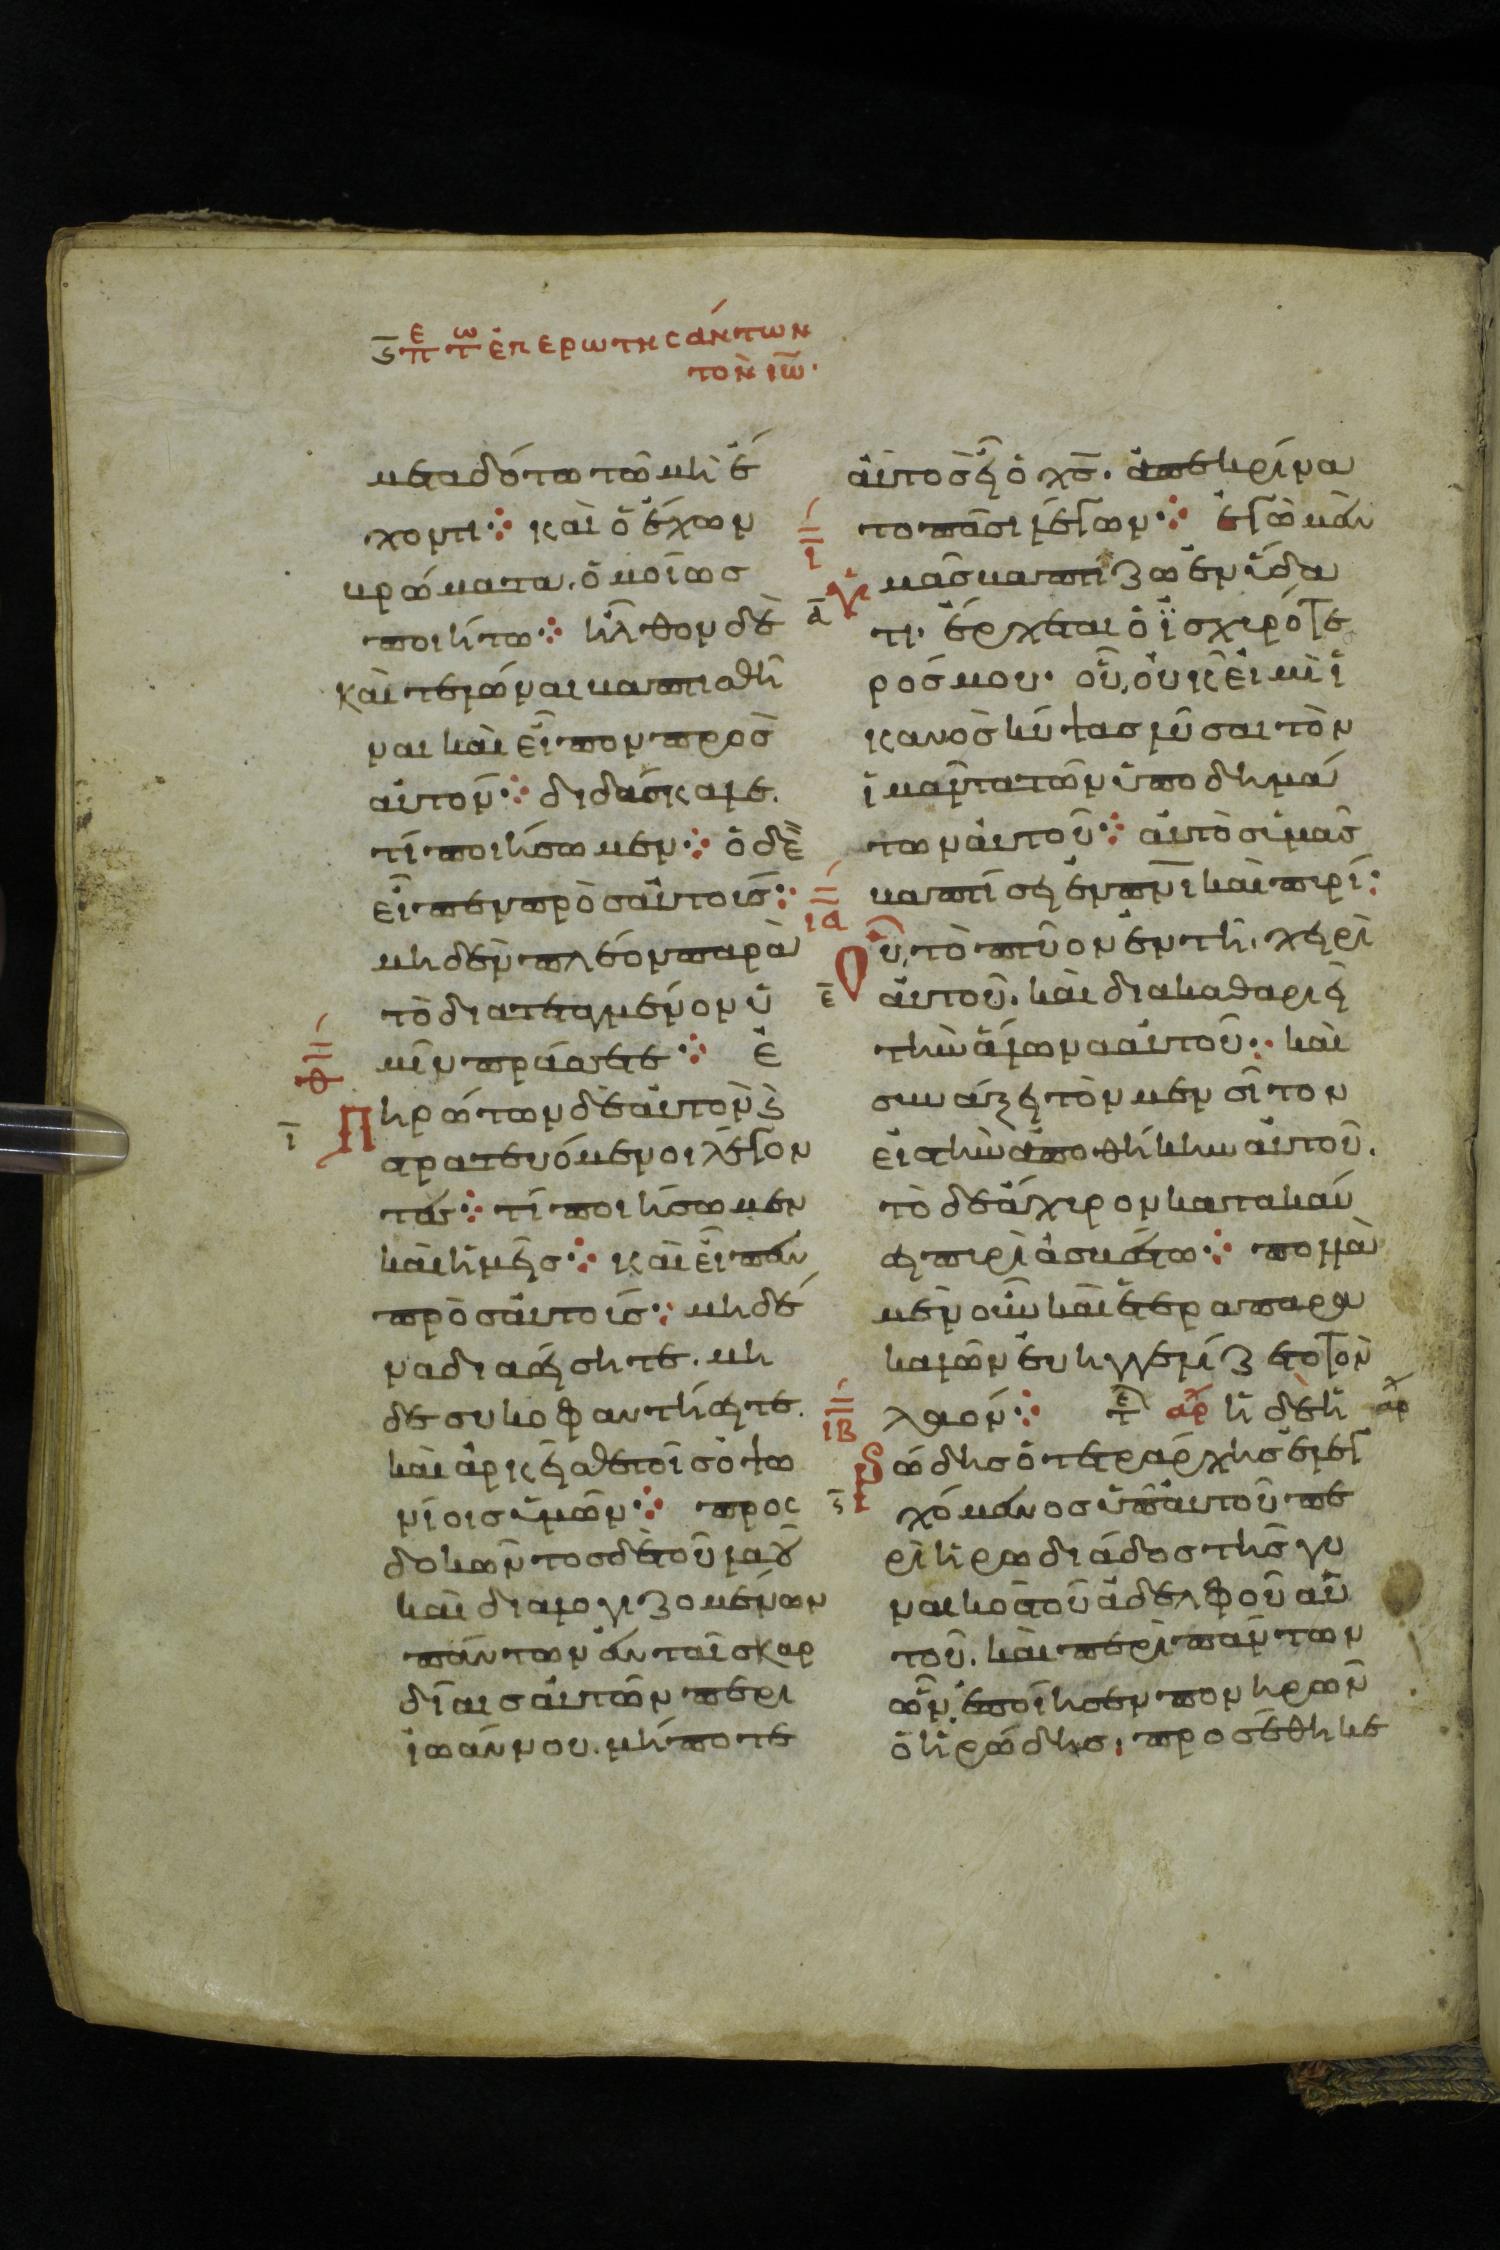 ϛ περὶ τῶν ἐπερωτησάντων
τὸν ἰω̅.
μεταδότω τῶ μὴ ἔ
χοντι⁘ καὶ ὁ ἔχων
βρώματα. ὁμοίως
ποιήτω⁘ ἦλθον δὲ
καὶ τελῶναι βαπτισθῆ
ναι καὶ εἶπον πρὸς
αὐτον⁘ διδάσκαλε.
τί ποιήσωμεν⁘ ὁ δὲ
εἶπεν πρὸς αὐτοὺς⁘
μηδὲν πλέον παρὰ
τὸ διατεταγμένον ὑ
μῖν πράσσετε⁘ ἐ
πηρώτων δὲ αὐτὸν ϛ
τρατευόμενοι λέγον
τες⁘ τί ποιήσωμεν
καὶ ἡμεῖς⁘ καὶ εἶπεν
πρὸς αὐτοὺς⁘ μηδέ
να διασείσητε. μη
δε συκοφαντήσητε.
καὶ ἀρκεῖσθε τοῖς ὀψω
νίοις ὑμῶν⁘ προς
δοκῶντος δὲ τοῦ λαοῦ
καὶ διαλογιζομένων
πάντων ἐν ταῖς καρ
δίαις αὐτῶν περι
ἰωάννου. μήποτε
αὐτὸς εἴη ὁ χ̅ς̅. ἀπεκρίνα
το πᾶσι λέγων⁘ ἐγὼ μὲν
ὑμᾶς βαπτίζω ἐν ὕδα
τι. ἔρχεται ὁ ἰσχυρότε
ρός μου. οὗ, οὐκ εἰμὶ ἱ
κανὸς κύψας λῦσαι τὸν
ἱμάντα τῶν ὑποδημά
των αὐτοῦ⁘ αὐτὸς ὑμᾶς
βαπτίσει ἐν π̅ν̅ι καὶ πυρί⁘
Οὗ, τὸ πτύον ἐν τῆ, χειρὶ
αὐτοῦ. καὶ διακαθαριεῖ
τὴν ἅλωνα αὐτοῦ⁖ καὶ
συνάξει τὸν μεν σῖτον
εἰς τὴν ἀποθήκην αὐτοῦ.
τὸ δὲ ἄχυρον κατακαύ
σει πυρὶ ἀσβέστω⁘ πολλὰ
μὲν οὖν καὶ ἕτερα παρα
καλῶν εὐηγγελίζετο τὸν
λαόν⁘ τε αρχ ἡ δὲ ἡ αρχ
ρώδης ὁ τετράρχης ἐλεγ
χόμενος ὑπ' αὐτοῦ πε
ρὶ ἡρωδιάδος τῆς γυ
ναικὸς τοῦ ἀδελφοῦ αὐ
τοῦ. καὶ περὶ πάντων
ὧν, ἐποίησεν πονηρῶν
ὁ ἡρώδης⁘ προσέθηκε